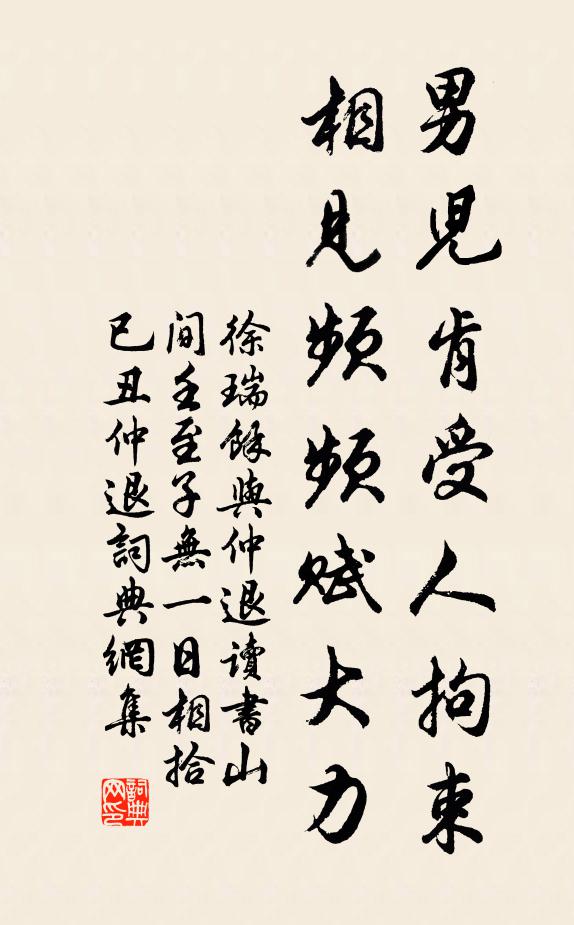 男兒肯受人拘束
相見頻頻賦大刀
徐瑞餘與仲退讀書山
間壬至子無一日相捨
已丑仲退詞典網集
詞典網印